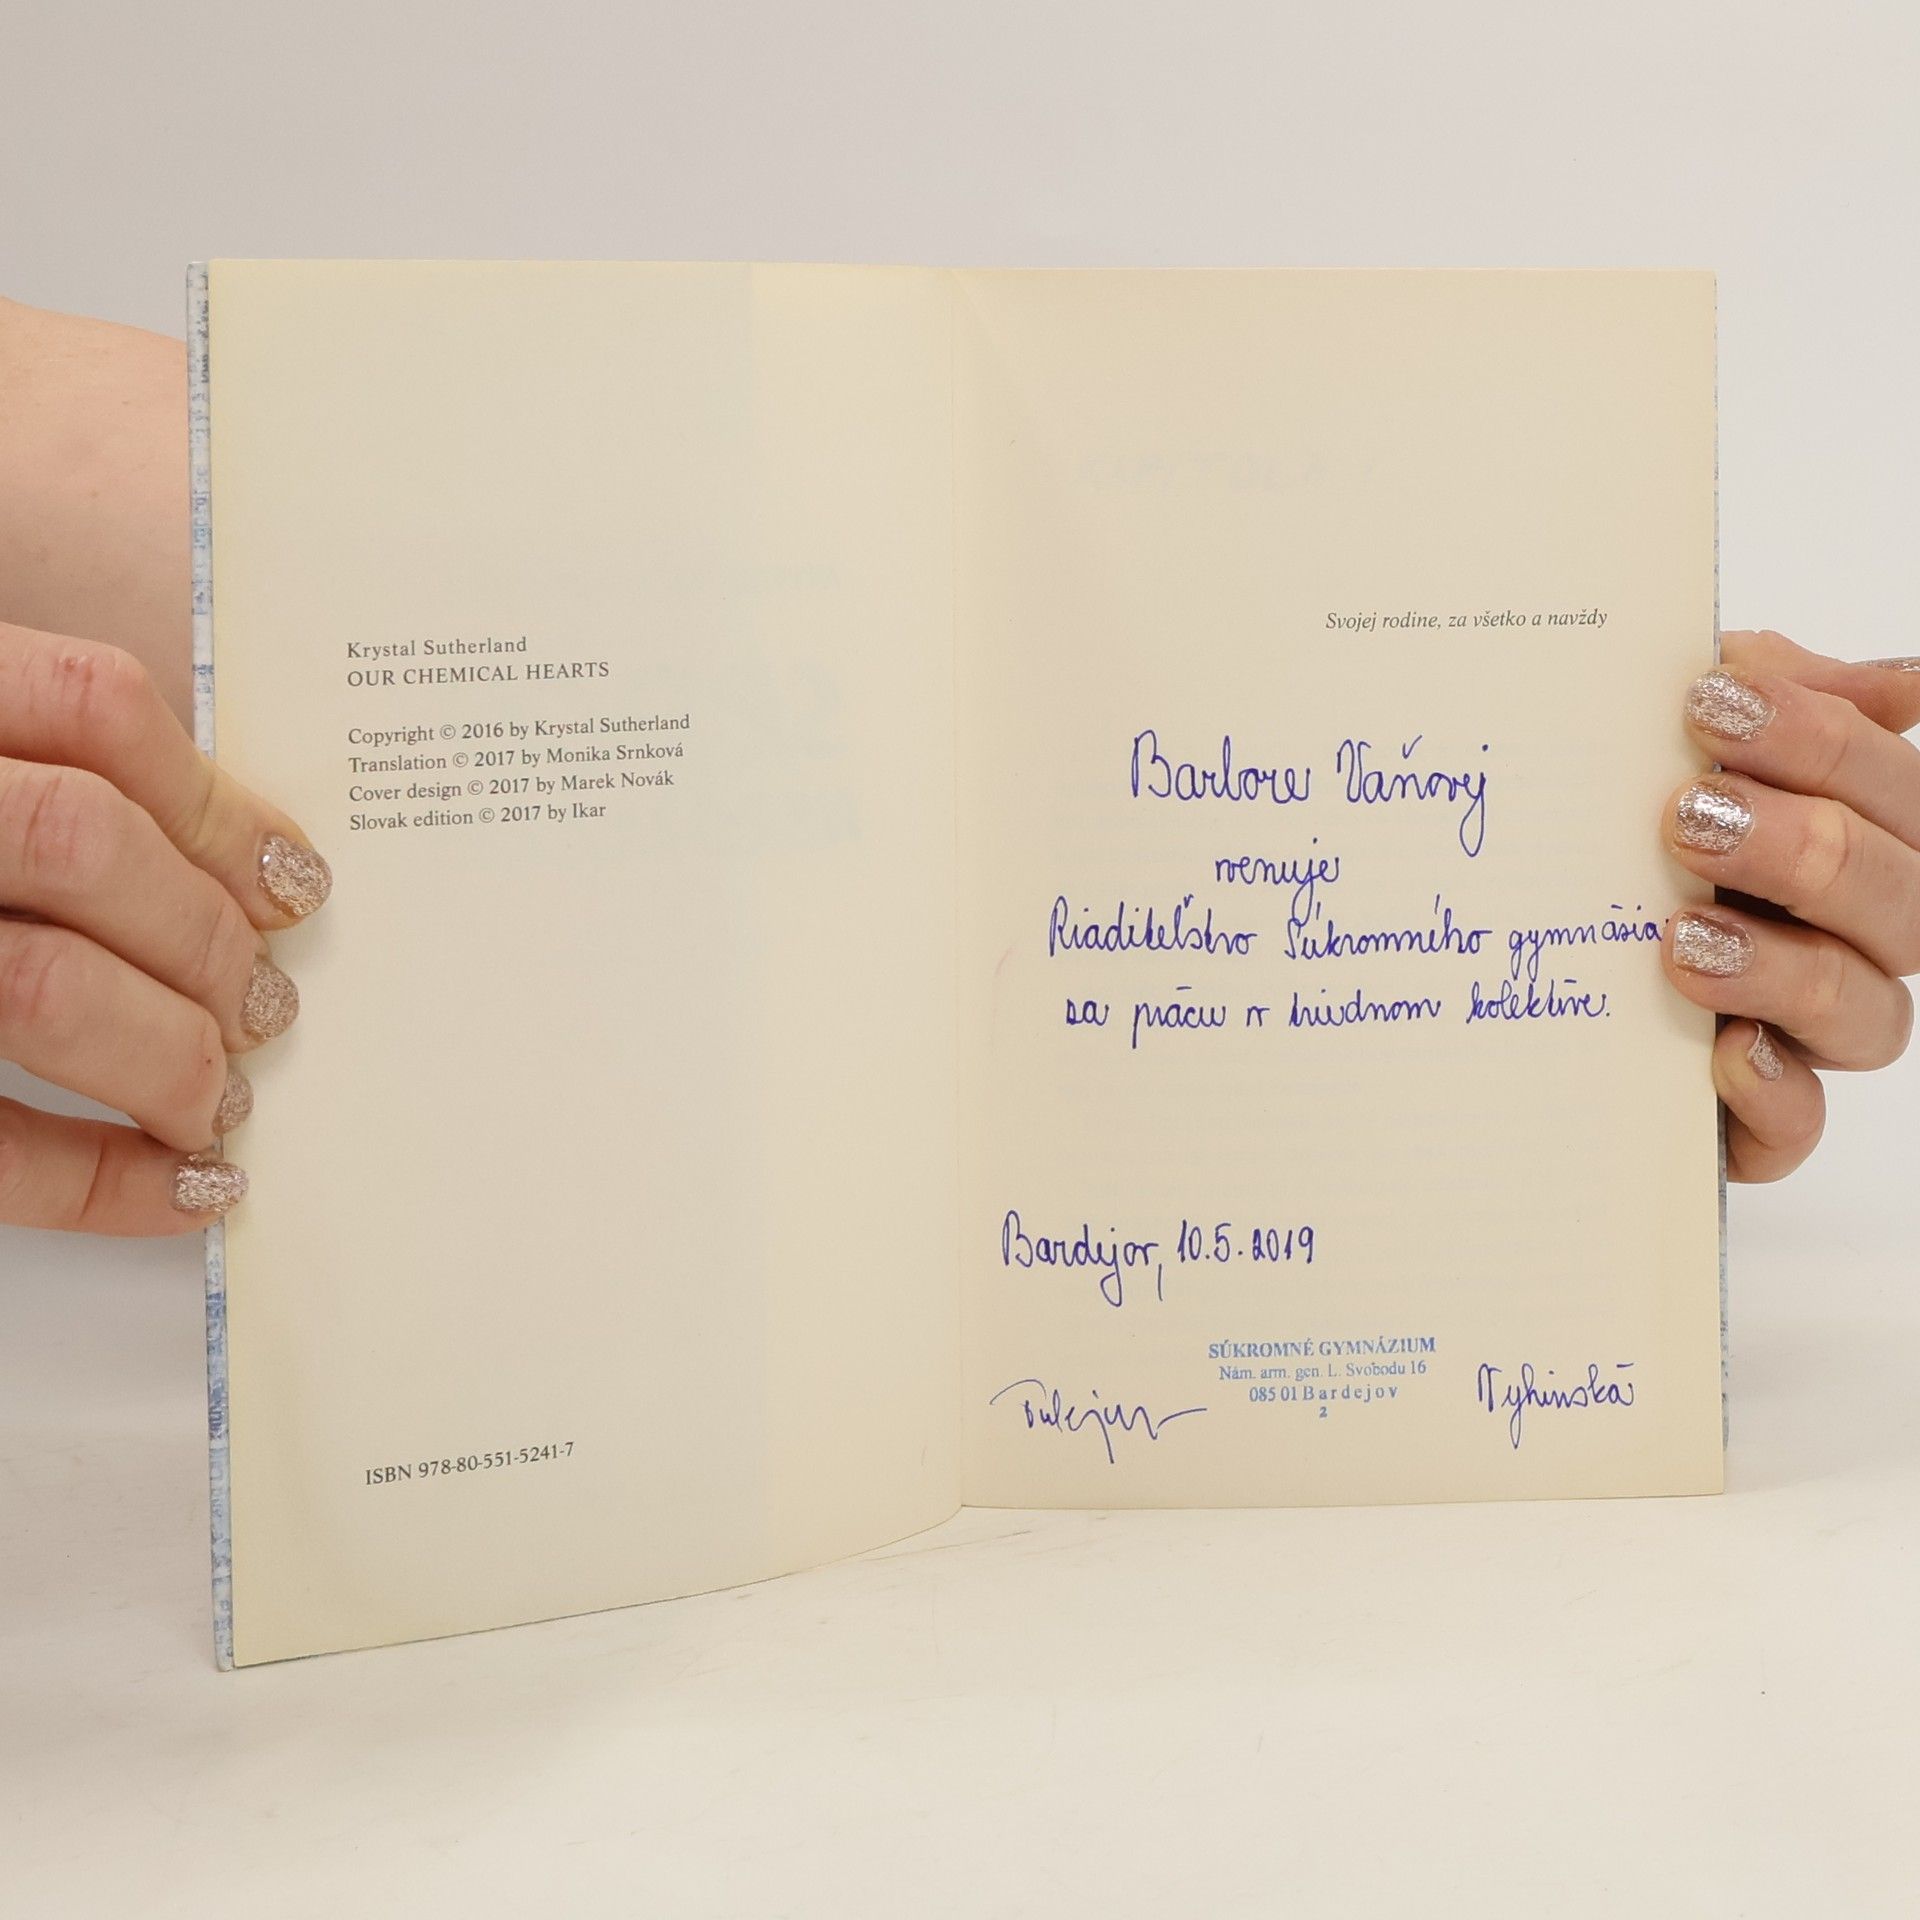 Krystal Sutherland
OUR CHEMICAL HEARTS
Copyright © 2016 by Krystal Sutherland
Translation © 2017 by Monika Srnková
Cover design © 2017 by Marek Novák
Slovak edition © 2017 by Ikar
ISBN 978-80-551-5241-7
Svojej rodine, za všetko a navždy
Barbore Vaňovej
venuje
Riaditeľstvo Súkromného gymnázia
za prácu v triednom kolektíve.
Bardejov, 10.5.2019
SÚKROMNÉ GYMNÁZIUM
Nám. arm. gen. L. Svobodu 16
085 01 Bardejov
2
Vyhinská